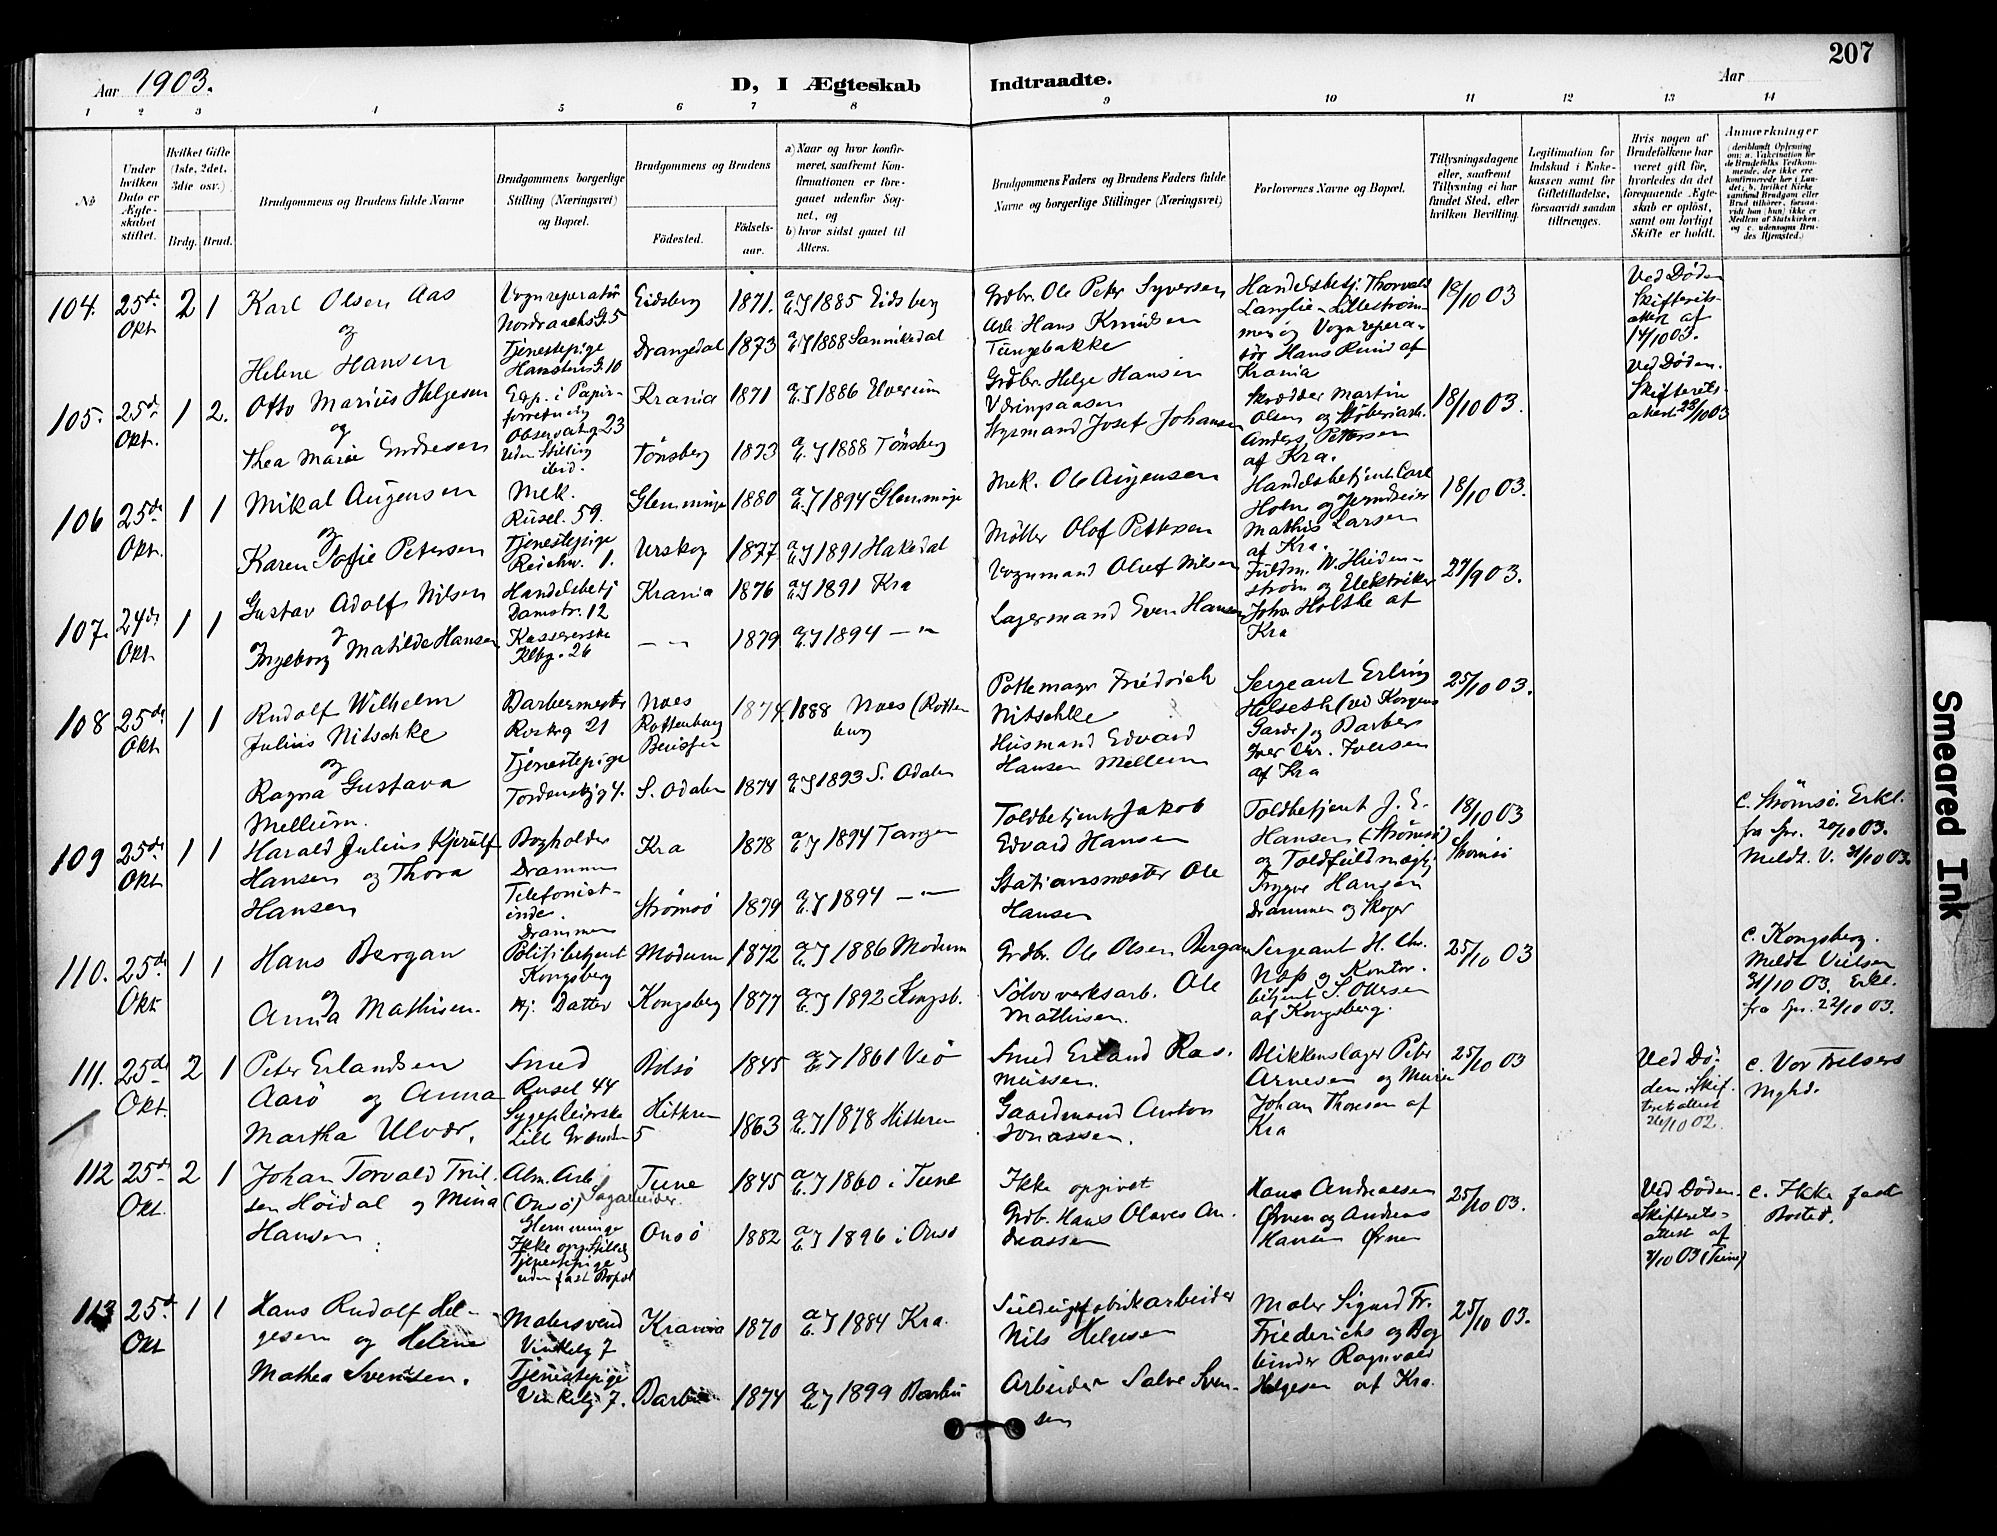 207
Aar 1903.
D, I Ægteskab Indtraadte.
Aar
1 2 3 4 5 6 7 8 9 10 11 12 13 14
No
Under hvilken Dato er Ægteskabet stiftet.
Hvilket Gifte (1ste, 2det, 3die osv.)
Brdg. Brud.
Brudgommens og Brudens fulde Navne
Brudgommens borgerlige Stilling (Næringsvei) og Bopæl.
Brudgommens og Brudens
Fødested.
Fødselsaar.
a) Naar og hvor konfirmeret, saafremt Konfirmationen er foregaaet udenfor Sognet, og
b) hvor sidst gaaet til Alters.
Brudgommens Faders og Brudens Faders fulde Navne og borgerlige Stillinger (Næringsvei)
Forlovernes Navne og Bopæl.
Tillysningsdagene eller, saafremt Tillysning ei har fundet Sted, efter hvilken Bevilling.
Legitimation for Indskud i Enkekassen samt for Giftetilladelse, forsaavidt saadan tiltrænges.
Hvis nogen af Brudefolkene har været gift før, hvorledes da det foregaaende Ægteskab er opløst, samt om lovligt Skifte er holdt.
Anmærkninger (deriblandt Oplysning om: a. Vakcination for de Brudefolks Vedkommende, der ikke ere konfirmerede her i Landet; b. hvilket Kirkesamfund Brudgom eller Brud tilhører, forsaavidt han (hun) ikke er Medlem af Statskirken, og c. udensogns Brudes Hjemsted.)
104. 25de Okt 2 1
Karl Olsen Aas
og
Helene Hansen
Vognreperatør
Nordraachsg. 5
Tjenestepige
Hanstensg. 10
Eidsberg 1871. 1885 Eidsberg
Drangedal 1873 1888 Sannikedal
Grdbr. Ole Peter Syversen
Arb. Hans Knudsen
Tungebakke
Handelsbetj. Thorvald
Langlie - Lillestrømmen og Vognreperatør Hans Rund af
Krania
18/10 03
Ved Døden
Skifteretsattest af
14/10 03.
105. 25de Okt. 1 2.
Otto Marius Helgesen
og
Thea Marie Endresen
Exp. i Papirforretning
Observatg 23
Uden Stilling
ibid.
Krania 1871 1886 Elverum
Tønsberg 1873 1888 Tønsberg
Grdbr. Helge Hansen
Styrmand Josef Johansen
Skrædder Martin
Olsen og Støberiarb.
Anders Pettersen
af Kra.
18/10 03.
Ved Døden.
Skifteretsattest 23/10 03
106 25de Okt. 1 1
Mikal Augensen
og
Karen Tofie Petersen
Mek.
Rusel. 59.
Tjenestepige
Reichw. 1.
Glemminge 1880 1894 Glemminge
Urskog 1877 1891 Hakedal
Mek. Ole Augensen
Møller Olof Pettersen
Handelsbetjent Carl
Holm og Jerndreier
Mathis Larsen
af Kra.
18/10 03.
107. 24de Okt 1 1
Gustav Adolf Nilsen
og
Ingeborg Matilde Hansen
Handelsbetj
Damstr. 12
Kassererske
Klbg. 26
Krania 1876 1891 Kra
— " — 1879 1894 — " —
Vognmand Oluf Nilsen
Lagermand Even Hansen
Fuldm. W. Heidenstrøm og Elektriker
Johs. Holske af
Kra
27/9 03.
108 25de Okt 1 1
Rudolf Wilhelm
Julius Nitschke
og
Ragna Gustava
Mellum.
Barbermester
Rostog 21
Tjenestepige
Tordenskjg 4.
Noes
Rottenburg 1874 1888 Noes (Rottenburg
S. Odalen 1874 1893 S. Odalen
Pottemager Friedrich
Nitschke
Husmand Edvard
Hansen Mellum
Sergeant Erling
Helseth (ved Kongens
Garde) og Barber
Iver Chr. Iversen
af Kra
25/10 03.
109 25de Okt 1 1
Harald Julius Kjerulf
Hansen og Thora
Hansen
Bogholder
Drammen
Telefonistinde.
Drammen
Kra 1878 1894 Tangen
Strømsø 1879 1894 — " —
Toldbetjent Jakob
Edvard Hansen
Stationsmester Ole
Hansen
Toldbetjent J. E.
Hansen (Strømsø)
og Toldfuldmægtig
Trygve Hansen
Drammen og Skoger
18/10 03
Strømsø
c. Strømsø. Erkl.
fra Spr. 20/10 03.
Meldt. V. 31/10 03.
110. 25de Okt 1 1
Hans Bergan
og
Anna Mathisen.
Politibetjent
Kongsberg
Hj. Datter
Modum 1872 1886 Modum
Kongsberg 1877 1892 Kongsb.
Grdbr. Ole Olsen Bergan
Sølvverksarb. Ole
Mathisen.
Sergeant H. Chr.
Næss og Kontorbetjent S. Ottersen
af Kongsberg.
25/10 03
c. Kongsberg.
Meldt Vielsen
31/10 03. Erkl.
fra Spr. 22/10 03.
111. 25de Okt. 2 1
Peter Erlandsen
Aarø og Anna
Martha Ulvær.
Smed
Rusel 44
Sygepleierske
Lille Grænsen 5
Bolsø 1845 1861 Veø
Hitteren 1863 1878 Hitteren
Smed Erland Rasmussen.
Gaardmand Anton
Jonassen.
Blikkenslager Peter
Arnesen og Murer
Johan Thoresen af
Kra
25/10 03
Ved Døden. Skifteretsattest
26/10 02.
c. Vor Frelsers
Mghd.
112 25de Okt. 2 1
Johan Torvald Trulsen Høidal og Mina
Hansen
Alm. Arb.
(Onsø) Sagarbeider.
Glemminge
Ikke opg. Stilling
Tjenestepige
uden fast Bopæl
Tune 1845 1860 i Tune
Onsø 1882 1896 i Onsø
Ikke opgivet
Grdb. Hans Olaves Andreassen
Hans Andreasen
Ørnen og Andreas
Hansen Ørnen
25/10 03.
Ved Døden.
Skifteretsattest af
3/10 03 (Tune)
c. Ikke fast
Bosted.
113 25de Okt 1 1
Hans Rudolf Helgesen og Helene
Mathea Svendsen.
Malersvend
Vinkelg 7
Tjenestepige
Vinkelg 7.
Krania 1870 1884 Kra.
Barbu 1874 1899 Barbu
Nils Helgesen
Arbeider Salve Svensen
Maler Sigurd Fr.
Friederichs og Bogbinder Ragnvald
Helgesen af Kra.
25/10 03.
Smeared Ink